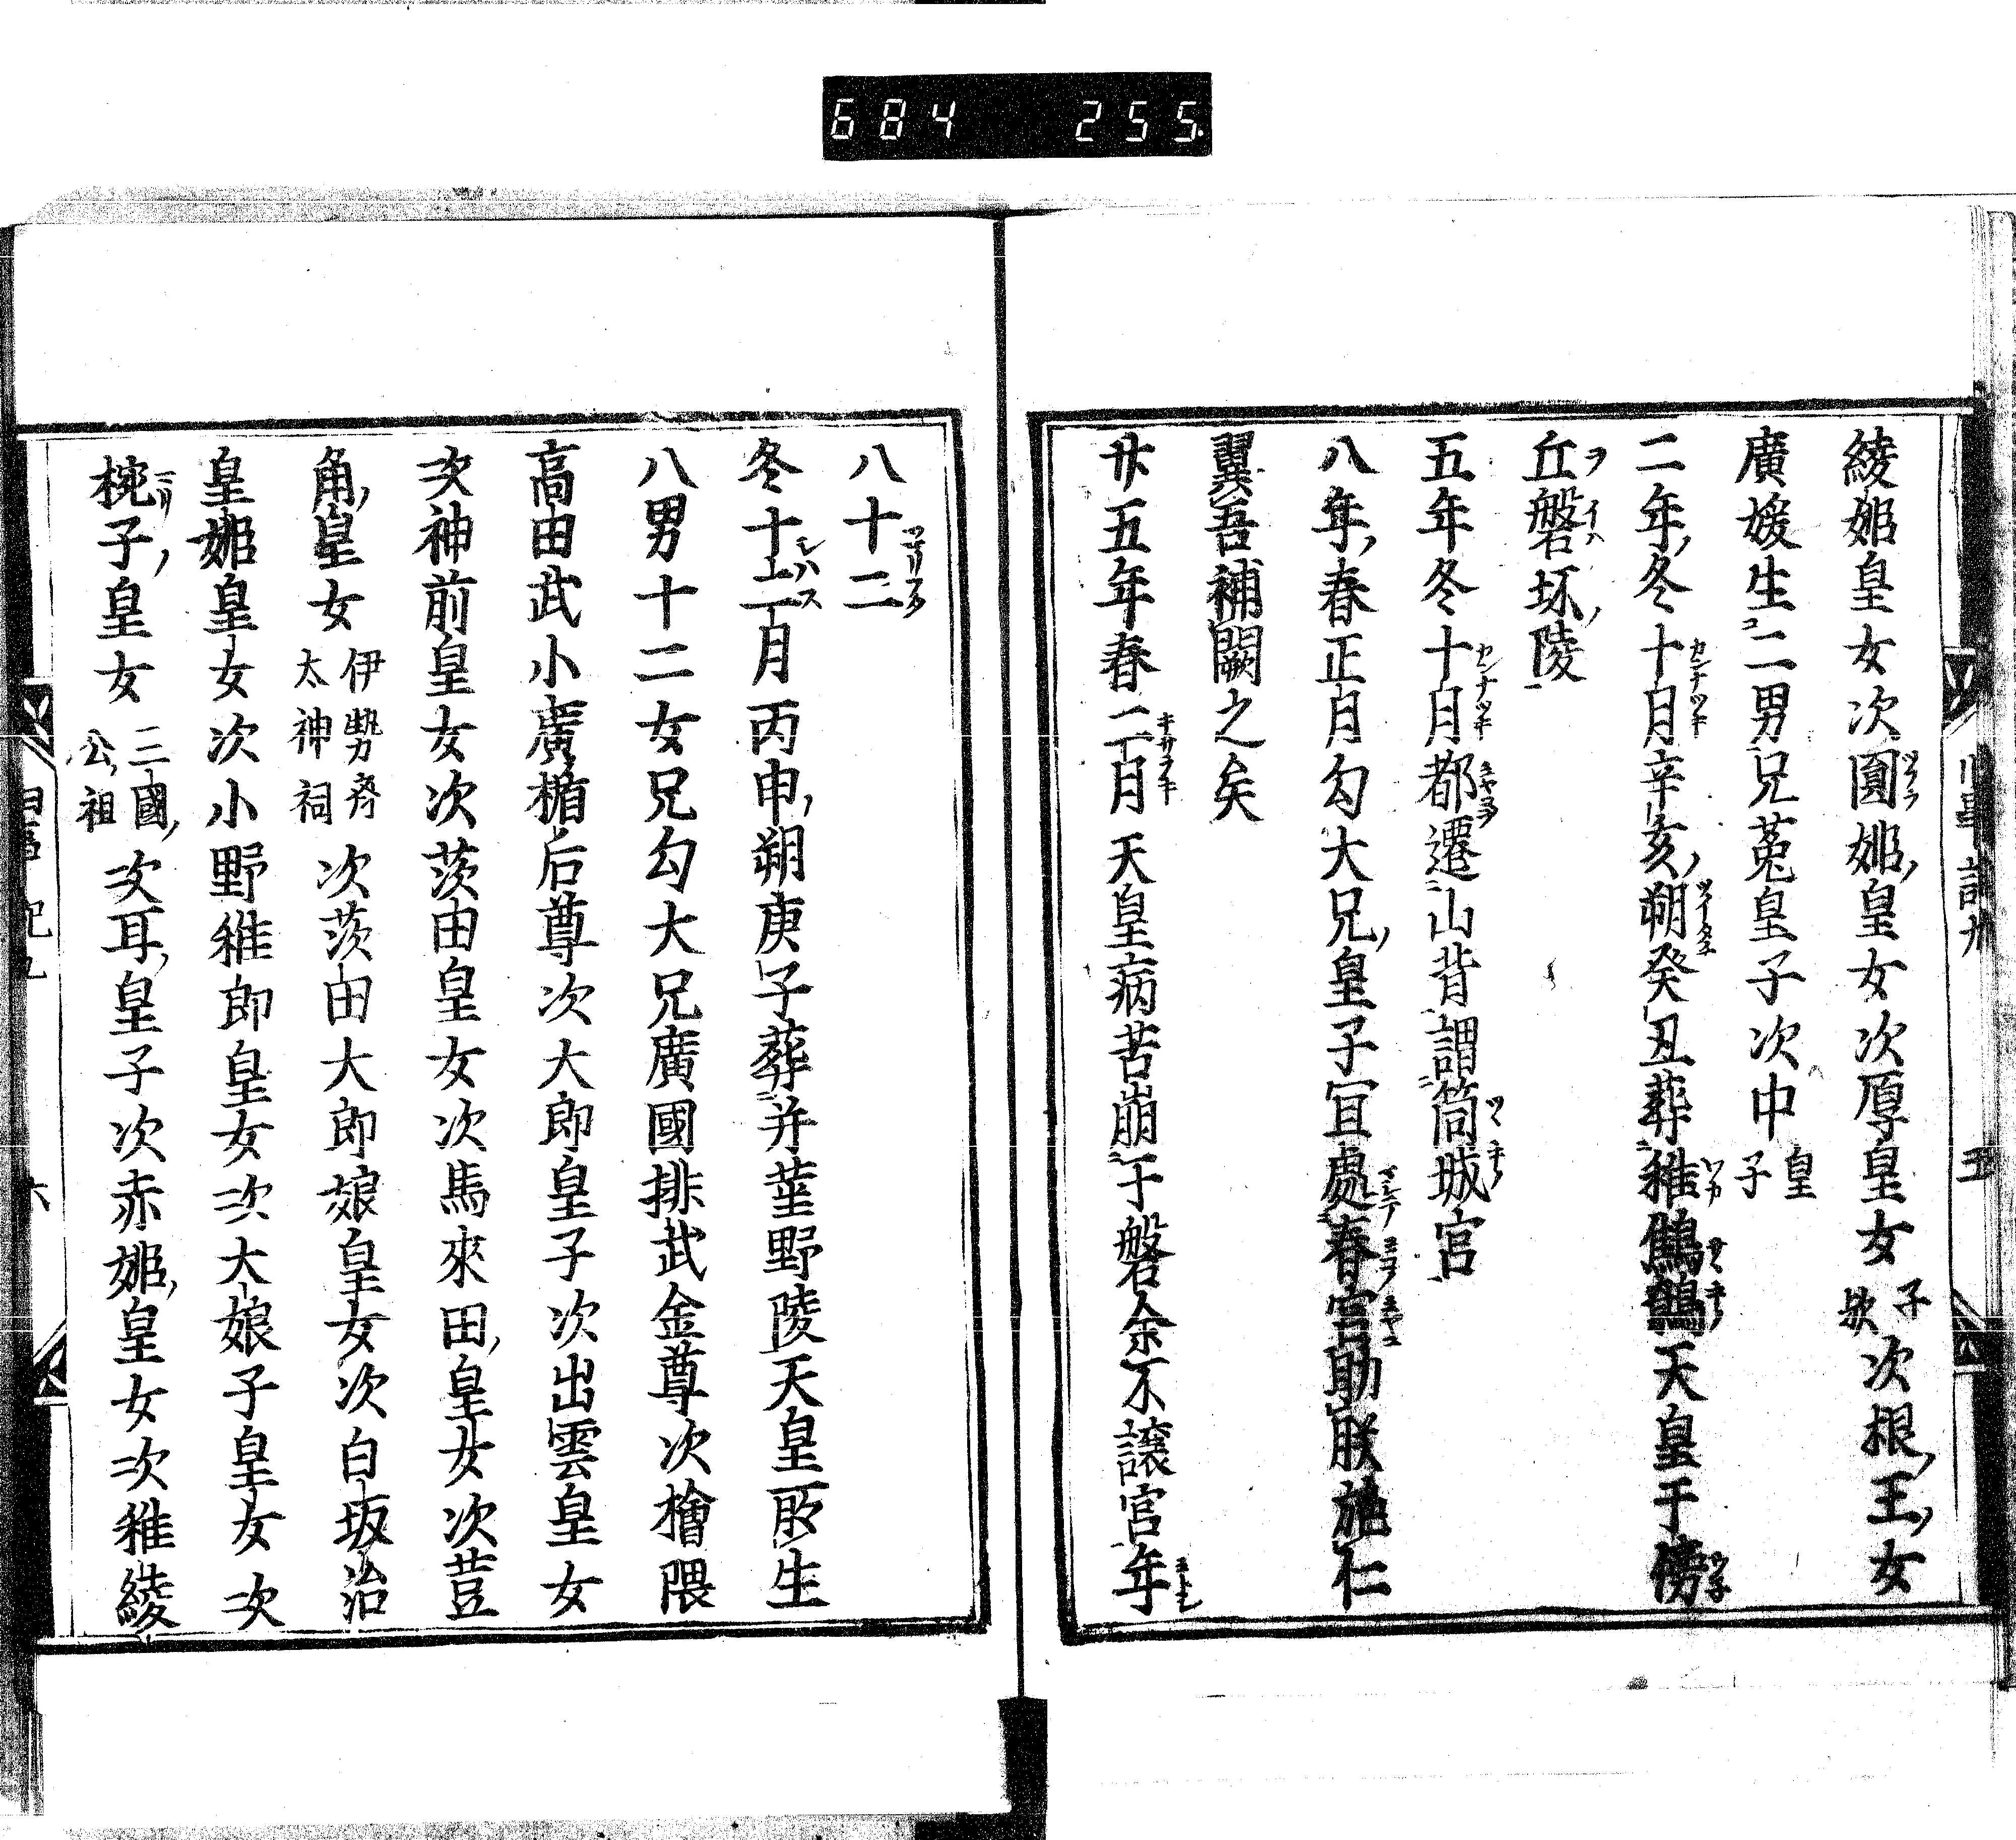 684 255
綾姫皇女次圓姫皇女次厚皇女子欤次根王女
廣媛生二男兄菟皇子次中皇子
二年冬十月辛亥朔癸丑葬稚鷦鷯天皇于傍
丘磐坏陵
五年冬十月都遷山背謂筒城宮
八年春正月勾大兄皇子冝處春宮助朕施仁
翼吾補闕之矣
廾五年春二月天皇病苦崩于磐余不譲宮年
八十二
冬十二月丙申朔庚子葬并藍野陵天皇所生
八男十二女兄勾大兄廣國排武金尊次檜隈
高田武小廣楯后尊次大郎皇子次出雲皇女
次神前皇女次茨田皇女次馬來田皇女次荳
角皇女伊勢齊太神祠次茨田大郎娘皇女次白坂治
皇姫皇女次小野稚郎皇女次大娘子皇女次
椀子皇女三國公祖次耳皇子次赤姫皇女次稚綾